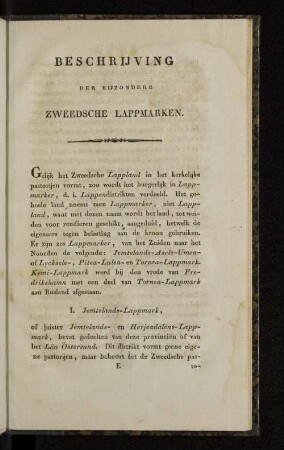 BESCHRIJVING
DER BIJZONDERE
ZWEEDSCHE LAPPMARKEN.
Gelijk het Zweedsche Lappland in het kerkelijke
pastorijen vormt, zoo wordt het burgerlijk in Lapp-
marker, d. i. Lappendistrikten verdeeld. Het ge-
heele land noemt men Lappmarker, niet Lapp-
land, want met dezen naam wordt het land, tot wei-
den voor rendieren geschikt, aangeduid, hetwelk de
eigenaars tegen belasting aan de kroon gebruiken.
Er zijn zes Lappmarker, van het Zuiden naar het
Noorden de volgende: Jemtelands- Asele- Umea-
of Lycksele-, Pitea- Lulea- en Tornea-Lappmark.
Kemi-Lappmark werd bij den vrede van Fre-
drikshamn met een deel van Tornea-Lappmark
aan Rusland afgestaan.
I. Jemtelands-Lappmark,
of juister Jemtelands- en Herjeadalens-Lapp-
mark, bevat gedeelten van deze provintiën of van
het Län Östersund. Dit distrikt vormt geene eige-
ne pastorijen, maar behoort tot de Zweedsche pas-
E
to-